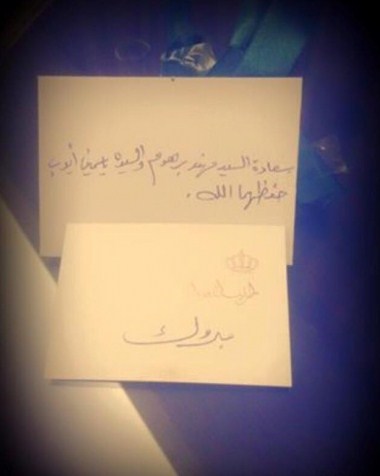 سعادة السيد مهند برهوم والسيدة ياسمين أيوب
حفظهما الله .
مبروك